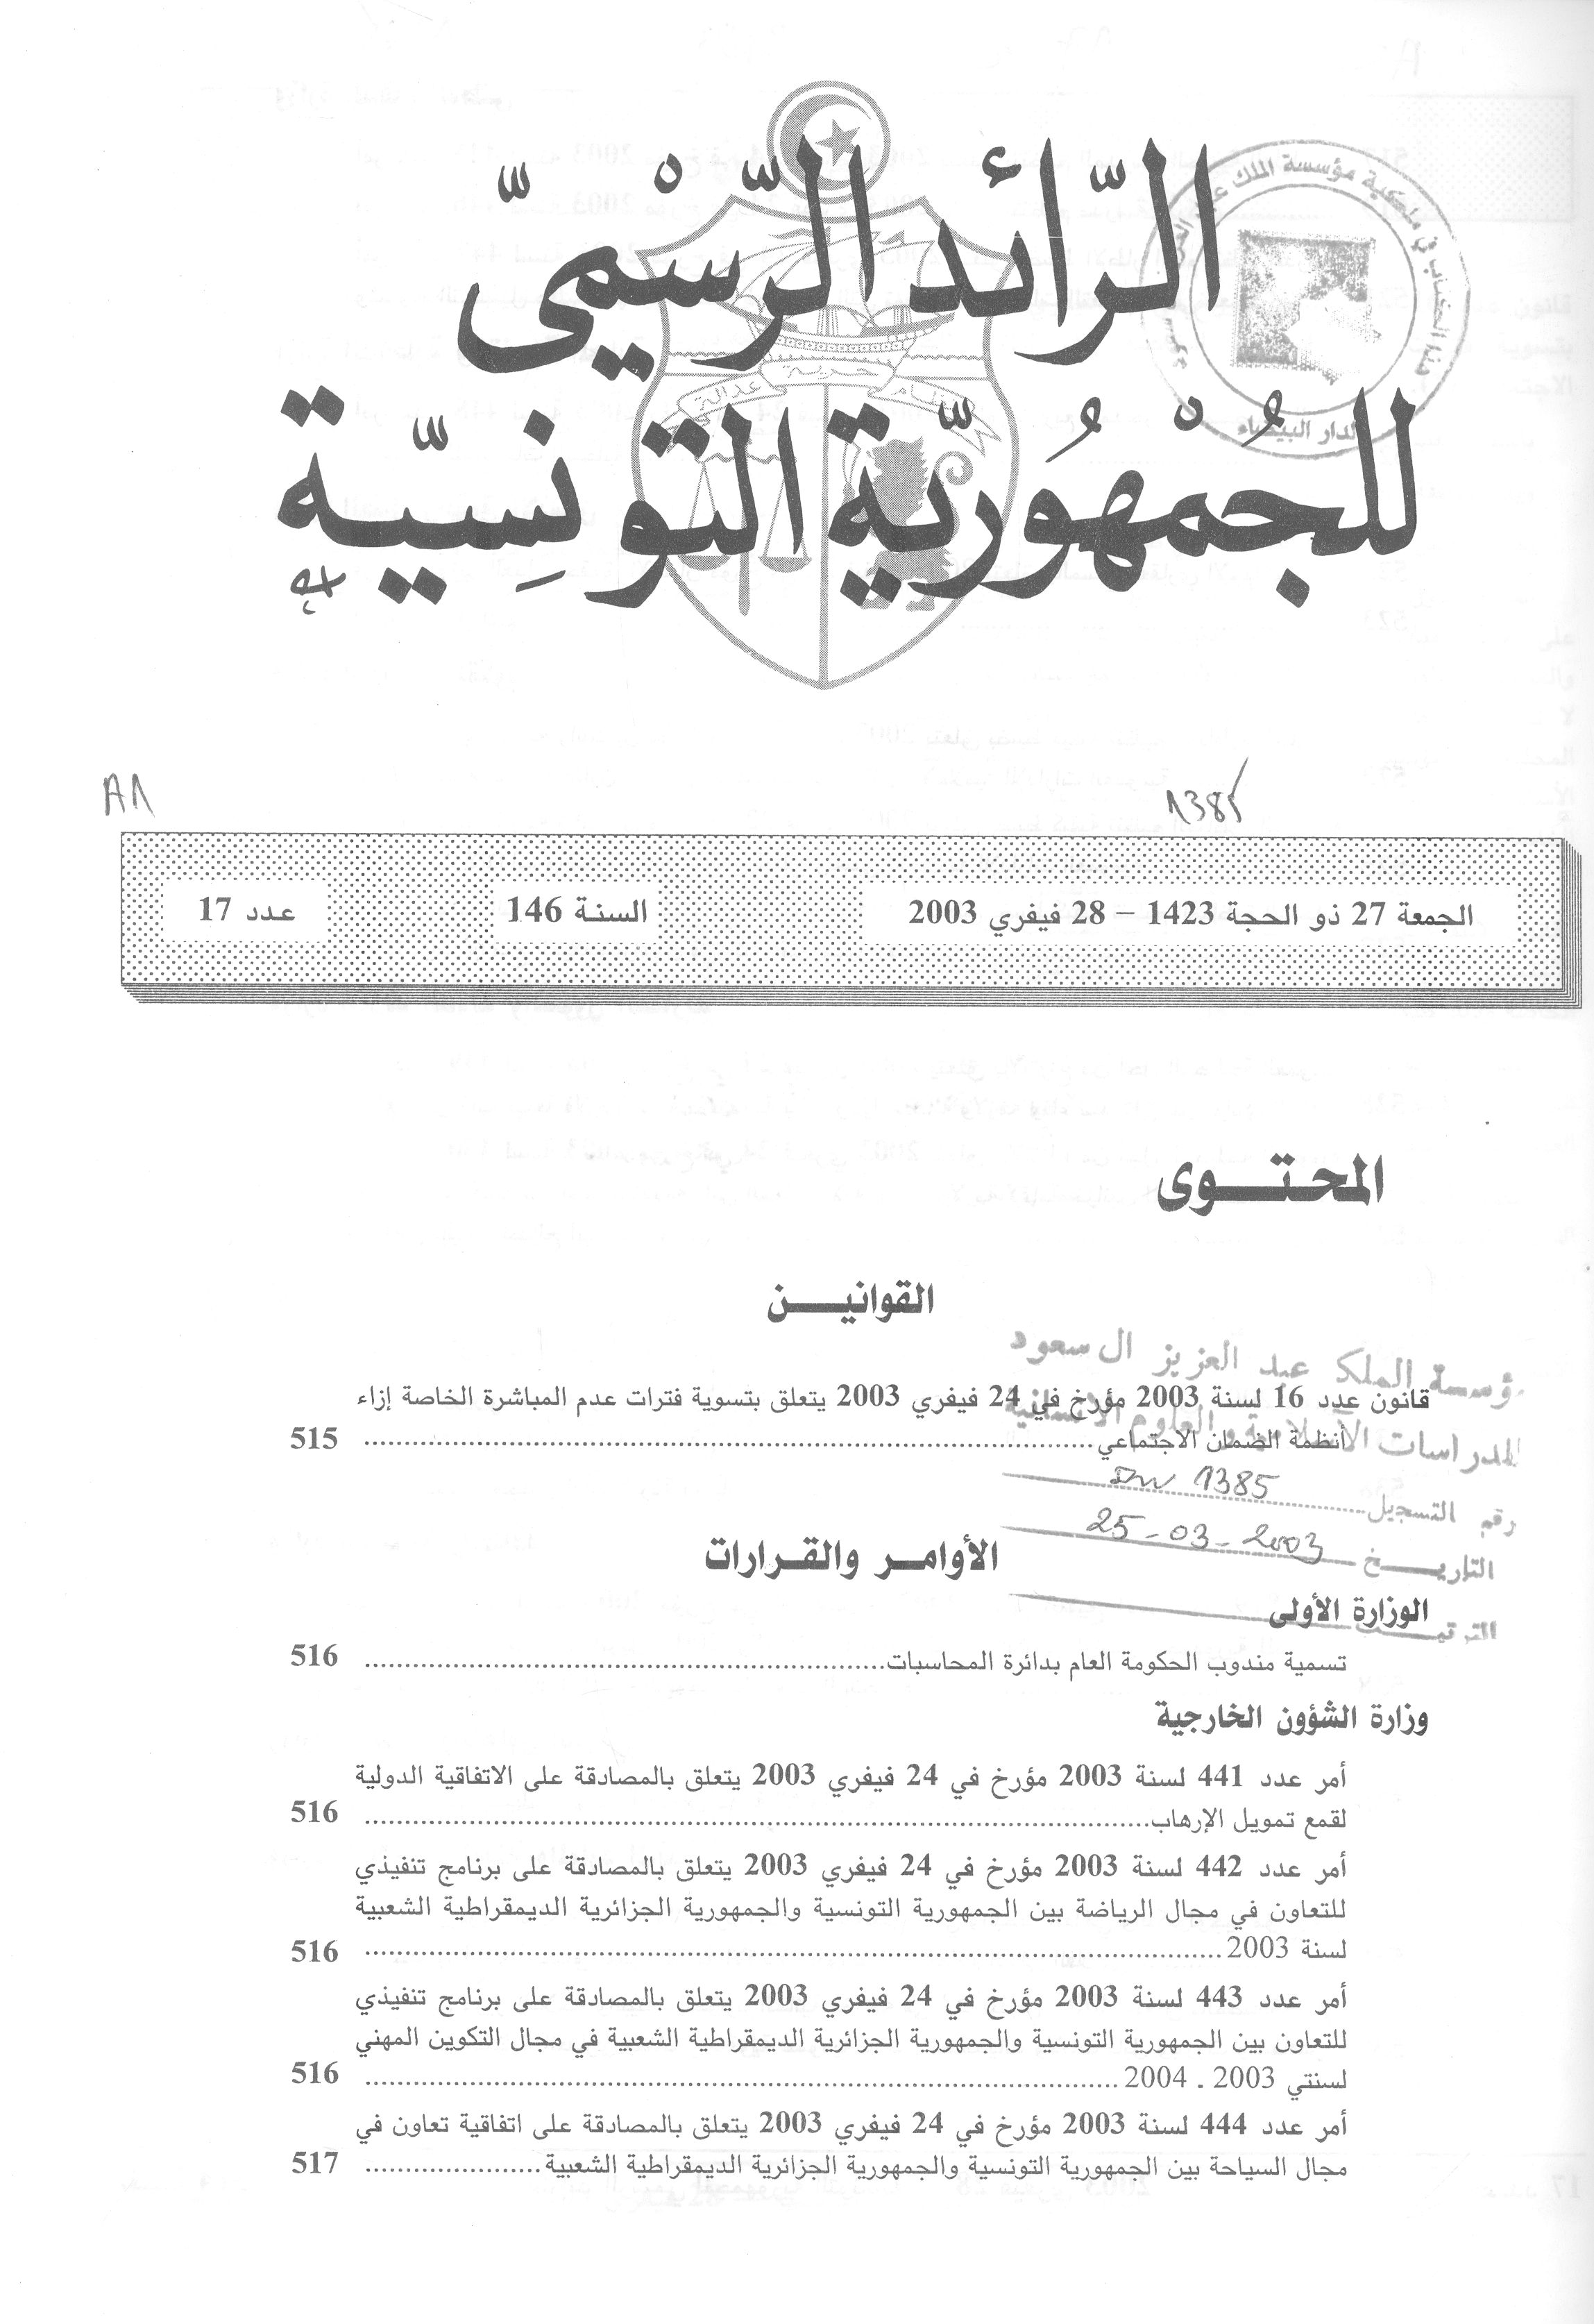 الرّائد الرّسْميّ
للجُمْهُوريّة التونِسيّة
حرية
نظام
عدالة
هذا الكتاب في ملكية مؤسسة الملك عبد العزيز
الدار البيضاء
A1
1385
الجمعة 27 ذو الحجة 1423 – 28 فيفري 2003
السنة 146
عدد 17
المحتوى
القوانين
مؤسسة الملك عبد العزيز ال سعود
قانون عدد 16 لسنة 2003 مؤرخ في 24 فيفري 2003 يتعلق بتسوية فترات عدم المباشرة الخاصة إزاء
للدراسات الاسلامية و العلوم الانسانية
أنظمة الضمان الاجتماعي 515
رقم التسجيل 1385
التاريخ 25-03-2003
الأوامر والقرارات
الوزارة الأولى
تسمية مندوب الحكومة العام بدائرة المحاسبات 516
وزارة الشؤون الخارجية
أمر عدد 441 لسنة 2003 مؤرخ في 24 فيفري 2003 يتعلق بالمصادقة على الاتفاقية الدولية
لقمع تمويل الإرهاب 516
أمر عدد 442 لسنة 2003 مؤرخ في 24 فيفري 2003 يتعلق بالمصادقة على برنامج تنفيذي
للتعاون في مجال الرياضة بين الجمهورية التونسية والجمهورية الجزائرية الديمقراطية الشعبية
لسنة 2003 516
أمر عدد 443 لسنة 2003 مؤرخ في 24 فيفري 2003 يتعلق بالمصادقة على برنامج تنفيذي
للتعاون بين الجمهورية التونسية والجمهورية الجزائرية الديمقراطية الشعبية في مجال التكوين المهني
لسنتي 2003 ـ 2004 516
أمر عدد 444 لسنة 2003 مؤرخ في 24 فيفري 2003 يتعلق بالمصادقة على اتفاقية تعاون في
مجال السياحة بين الجمهورية التونسية والجمهورية الجزائرية الديمقراطية الشعبية 517